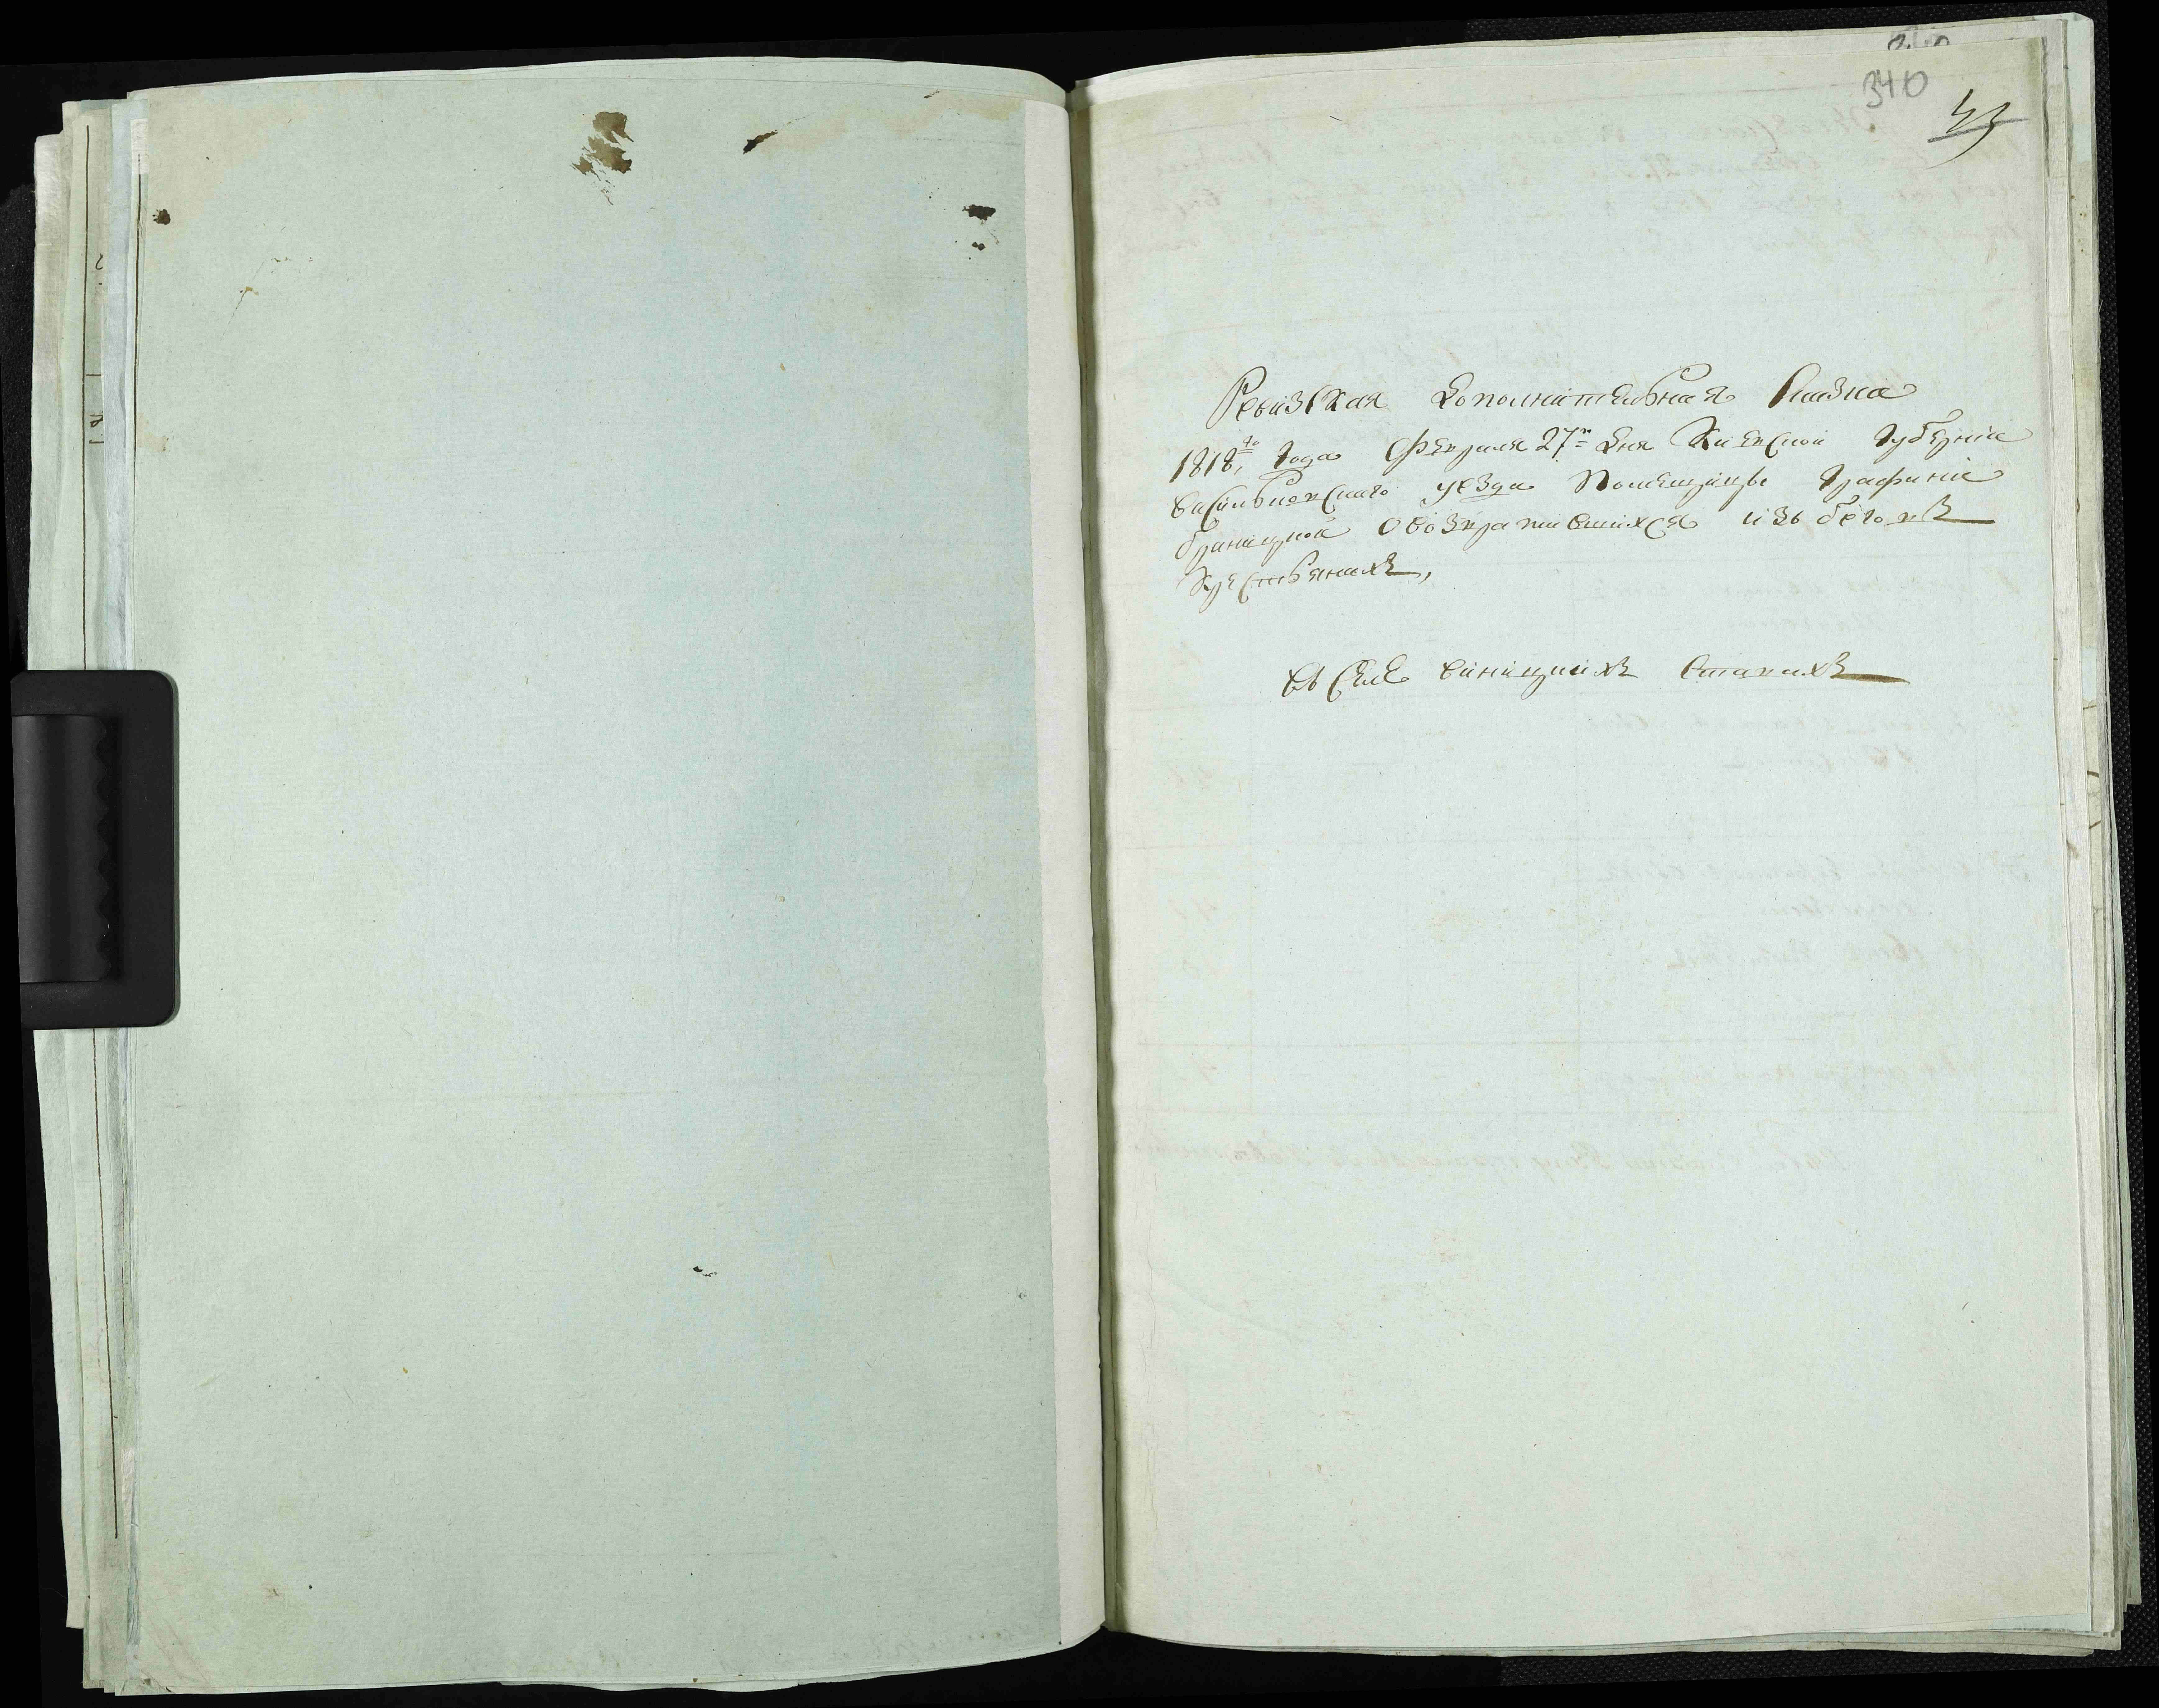 340
43
Ревизская дополнительная сказка
1818го года Февраля 27го дня Киевской губернии
васильковскаго уезда Помещицы Графини
браницкой О возвратившихся изъ беговъ
Крестьянахъ,
въ Селе виницкихъ Ставахъ